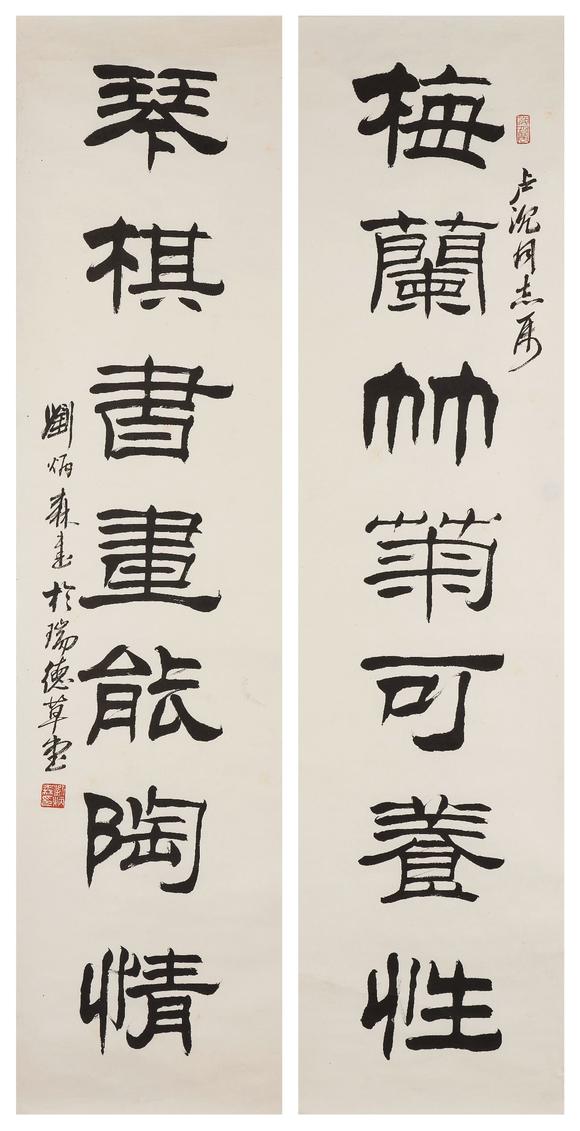 梅蘭竹菊可養性
琴棋書畫能陶情
劉炳森書於瑞德草堂